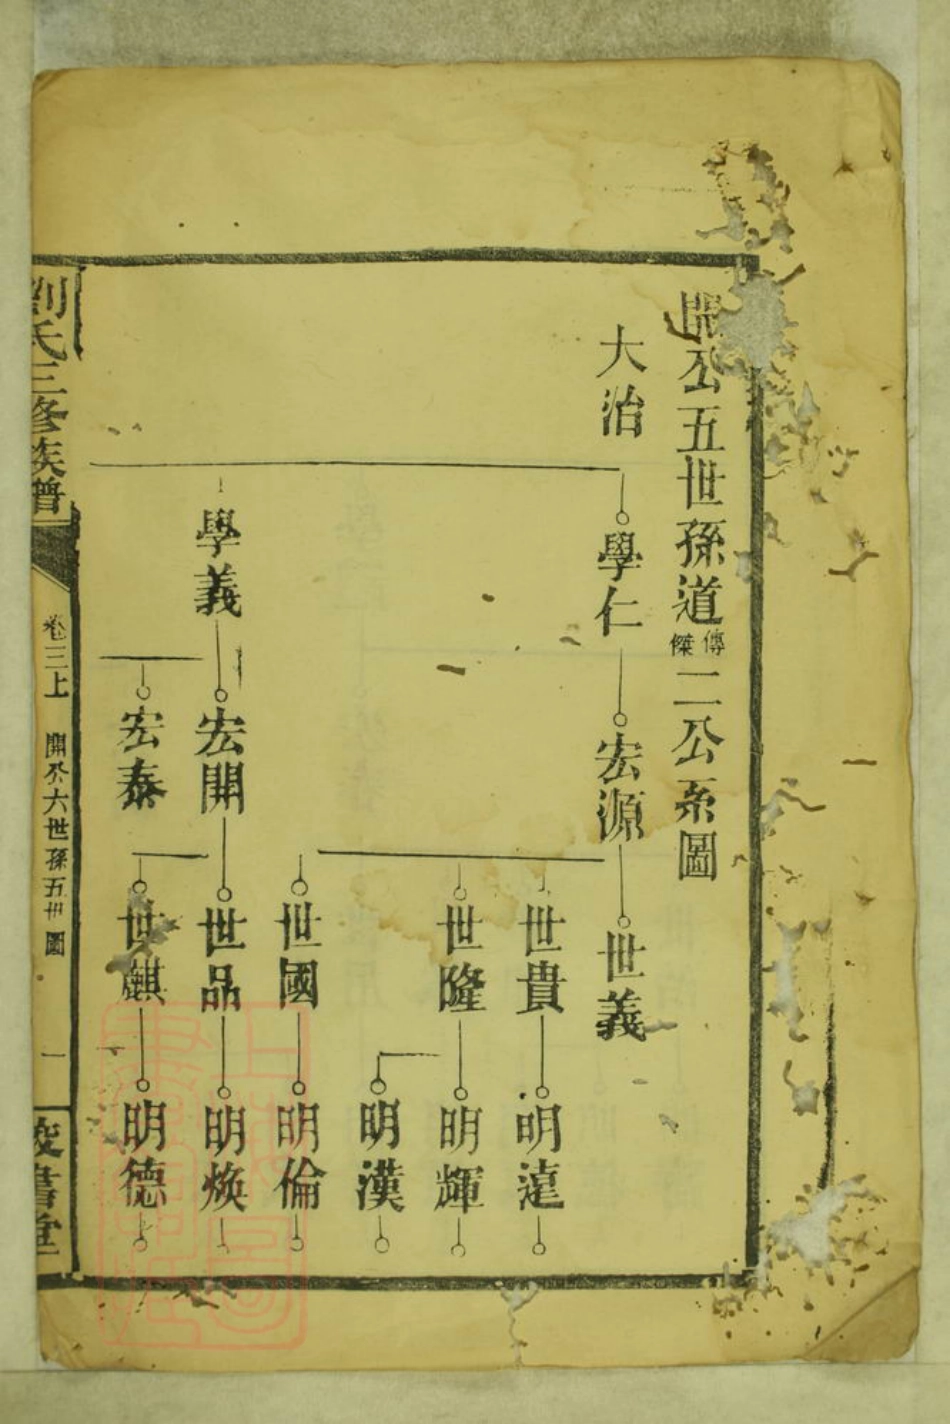 開公五世孫道傳傑二公系圖
大治
學仁
宏源
世義
世貴
明遠
世隆
明輝
明漢
世國
明倫
學義
宏開
世品
明煥
宏泰
世麒
明德
劉氏三修族譜
卷三上
開公六世孫五世圖
一
校書堂